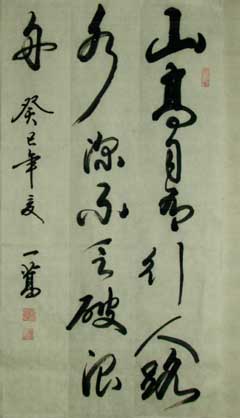 山高自有行人路
水深不乏破浪
舟 癸巳年夏 一